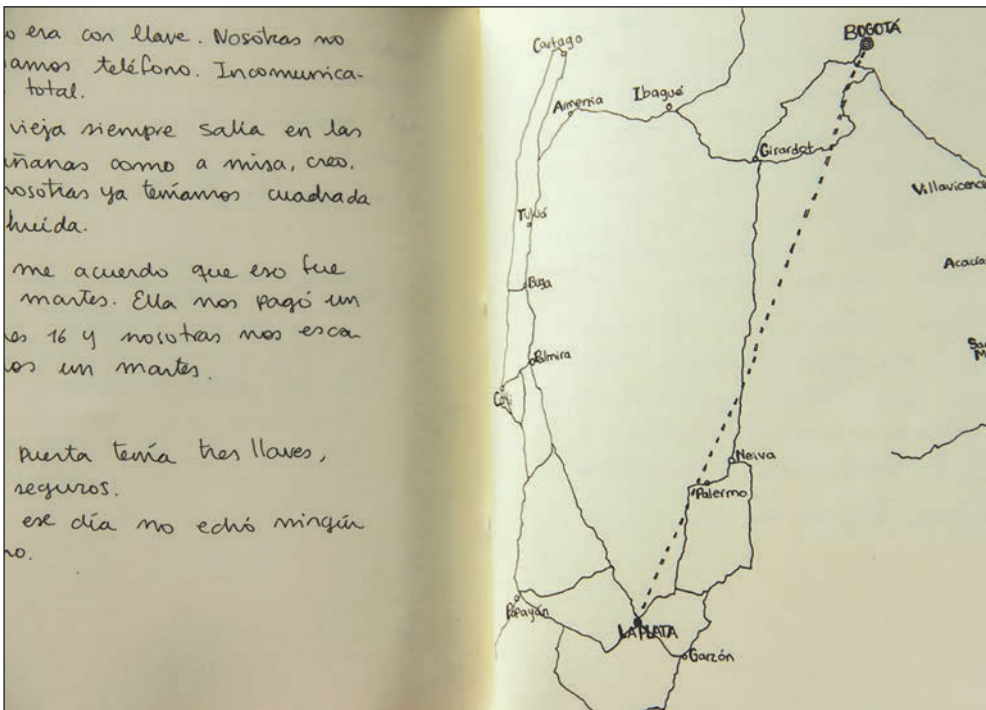 o era con llave. Nosotras no
amos teléfono. Incomunica-
total.
vieja siempre salía en las
ñanas como a misa, creo.
nosotras ya teníamos cuadrada
huída.
me acuerdo que eso fue
martes. Ella nos pagó un
es 16 y nosotras nos esca-
os un martes.
puerta tenía tres llaves,
seguros.
ese día no echó ningún
o.
BOGOTÁ
Cartago
Ibagué
Armenia
Girardot
Villavicenc
Tuluá
Acacía
Buga
Palmira
Cali
Neiva
Palermo
Popayán
LA PLATA
Garzón